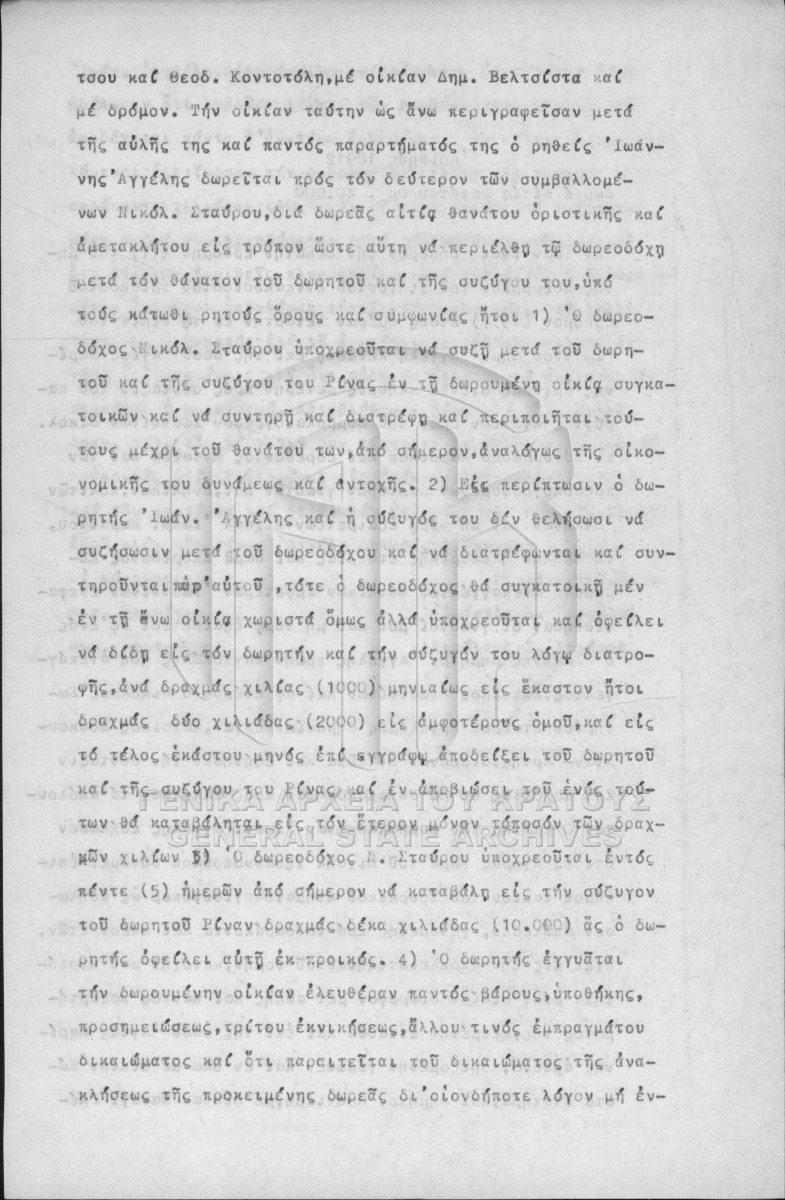 τσου καί Θεοδ. Κοντοτόλη,μέ οἰκίαν Δημ. Βελτσίστα καί
μέ δρόμον. Τήν οἰκίαν ταύτην ὡς ἄνω περιγραφεῖσαν μετά
τῆς αὐλῆς της καί παντός παραρτήματός της ὁ ρηθείς Ἰωάν-
νης Ἀγγέλης δωρεῖται πρός τόν δεύτερον τῶν συμβαλλομέ-
νων Νικόλ. Σταύρου,διά δωρεᾶς αἰτίᾳ θανάτου ὁριστικῆς καί
ἀμετακλήτου εἰς τρόπον ὥστε αὕτη νά περιέλθῃ τῷ δωρεοδόχῃ
μετά τόν θάνατον τοῦ δωρητοῦ καί τῆς συζύγου του,ὑπό
τούς κάτωθι ρητούς ὅρους καί συμφωνίας ἤτοι 1) Ὁ δωρεο-
δόχος Νικόλ. Σταύρου ὑποχρεοῦται νά συζῇ μετά τοῦ δωρη-
τοῦ καί τῆς συζύγου του Ρίνας ἐν τῇ δωρουμένῃ οἰκίᾳ συγκα-
τοικῶν καί νά συντηρῇ καί διατρέφῃ καί περιποιῆται τού-
τους μέχρι τοῦ θανάτου των,ἀπό σήμερον,ἀναλόγως τῆς οἰκο-
νομικῆς του δυνάμεως καί ἀντοχῆς. 2) Εἰς περίπτωσιν ὁ δω-
ρητής Ἰωάν. Ἀγγέλης καί ἡ σύζυγός του δέν θελήσωσι νά
συζήσωσιν μετά τοῦ δωρεοδόχου καί νά διατρέφωνται καί συν-
τηροῦνται παρ'αὐτοῦ ,τότε ὁ δωρεοδόχος θά συγκατοικῇ μέν
ἐν τῇ ἄνω οἰκίᾳ χωριστά ὅμως ἀλλά ὑποχρεοῦται καί ὀφείλει
νά δίδῃ εἰς τόν δωρητήν καί τήν σύζυγόν του λόγῳ διατρο-
φῆς,ἀνά δραχμάς χιλίας (1000) μηνιαίως εἰς ἕκαστον ἤτοι
δραχμάς δύο χιλιάδας (2000) εἰς ἀμφοτέρους ὁμοῦ,καί εἰς
τό τέλος ἑκάστου μηνός ἐπί εγγράφῳ ἀποδείξει τοῦ δωρητοῦ
καί τῆς συζύγου του Ρίνας καί ἐν ἀποβιώσει τοῦ ἑνός τού-
των θά καταβάληται εἰς τόν ἕτερον μόνον τόποσόν τῶν δραχ-
μῶν χιλίων 3) Ὁ δωρεοδόχος Ν. Σταύρου ὑποχρεοῦται ἐντός
πέντε (5) ἡμερῶν ἀπό σήμερον νά καταβάλῃ εἰς τήν σύζυγον
τοῦ δωρητοῦ Ρίναν δραχμάς δέκα χιλιάδας (10.000) ἅς ὁ δω-
ρητής ὀφείλει αὐτῇ ἐκ προικός. 4) Ὁ δωρητής ἐγγυᾶται
τήν δωρουμένην οἰκίαν ἐλευθέραν παντός βάρους,ὑποθήκης,
προσημειώσεως,τρίτου ἐκνικήσεως,ἄλλου τινός ἐμπραγμάτου
δικαιώματος καί ὅτι παραιτεῖται τοῦ δικαιώματος τῆς ἀνα-
κλήσεως τῆς προκειμένης δωρεᾶς δι'οἱονδήποτε λόγον μή ἐν-
ΓΕΝΙΚΑ ΑΡΧΕΙΑ ΤΟΥ ΚΡΑΤΟΥΣ
GENERAL STATE ARCHIVES